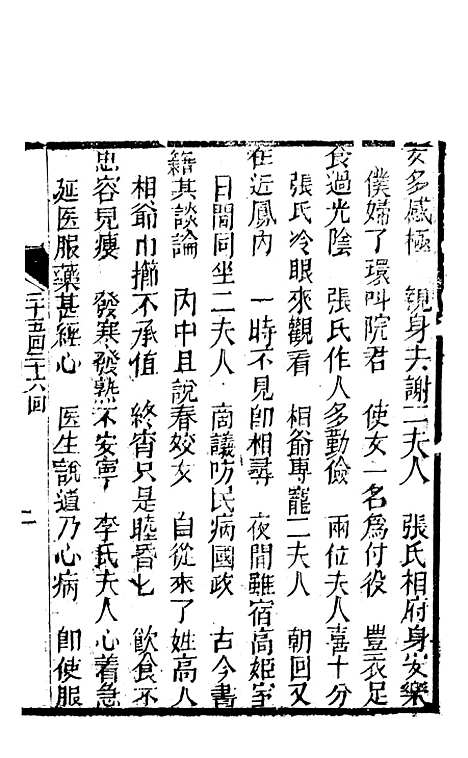 安多感極　親身去謝二夫人　張氏相府身安樂
僕婦了環叫院君　使女一名爲付役　豐衣足
食過光陰　張氏作人多勤儉　兩位夫人喜十分
張氏冷眼來觀看　相爺專寵二夫人　朝回又
在近鳳內　一時不見即相尋　夜間雖宿高姬家
日間同坐二夫人　啇議吻民病國政　古今書
籍其談論　丙中且說春姣女　自從來了姓高人
相爺巾擲不承值　終宵只是睦昏七　飲食不
思容見瘦　發寒發熱不安寧　李氏夫人心着急
延医服藥甚經心　医生說道乃心病　即使服
二十五回二十六回　二